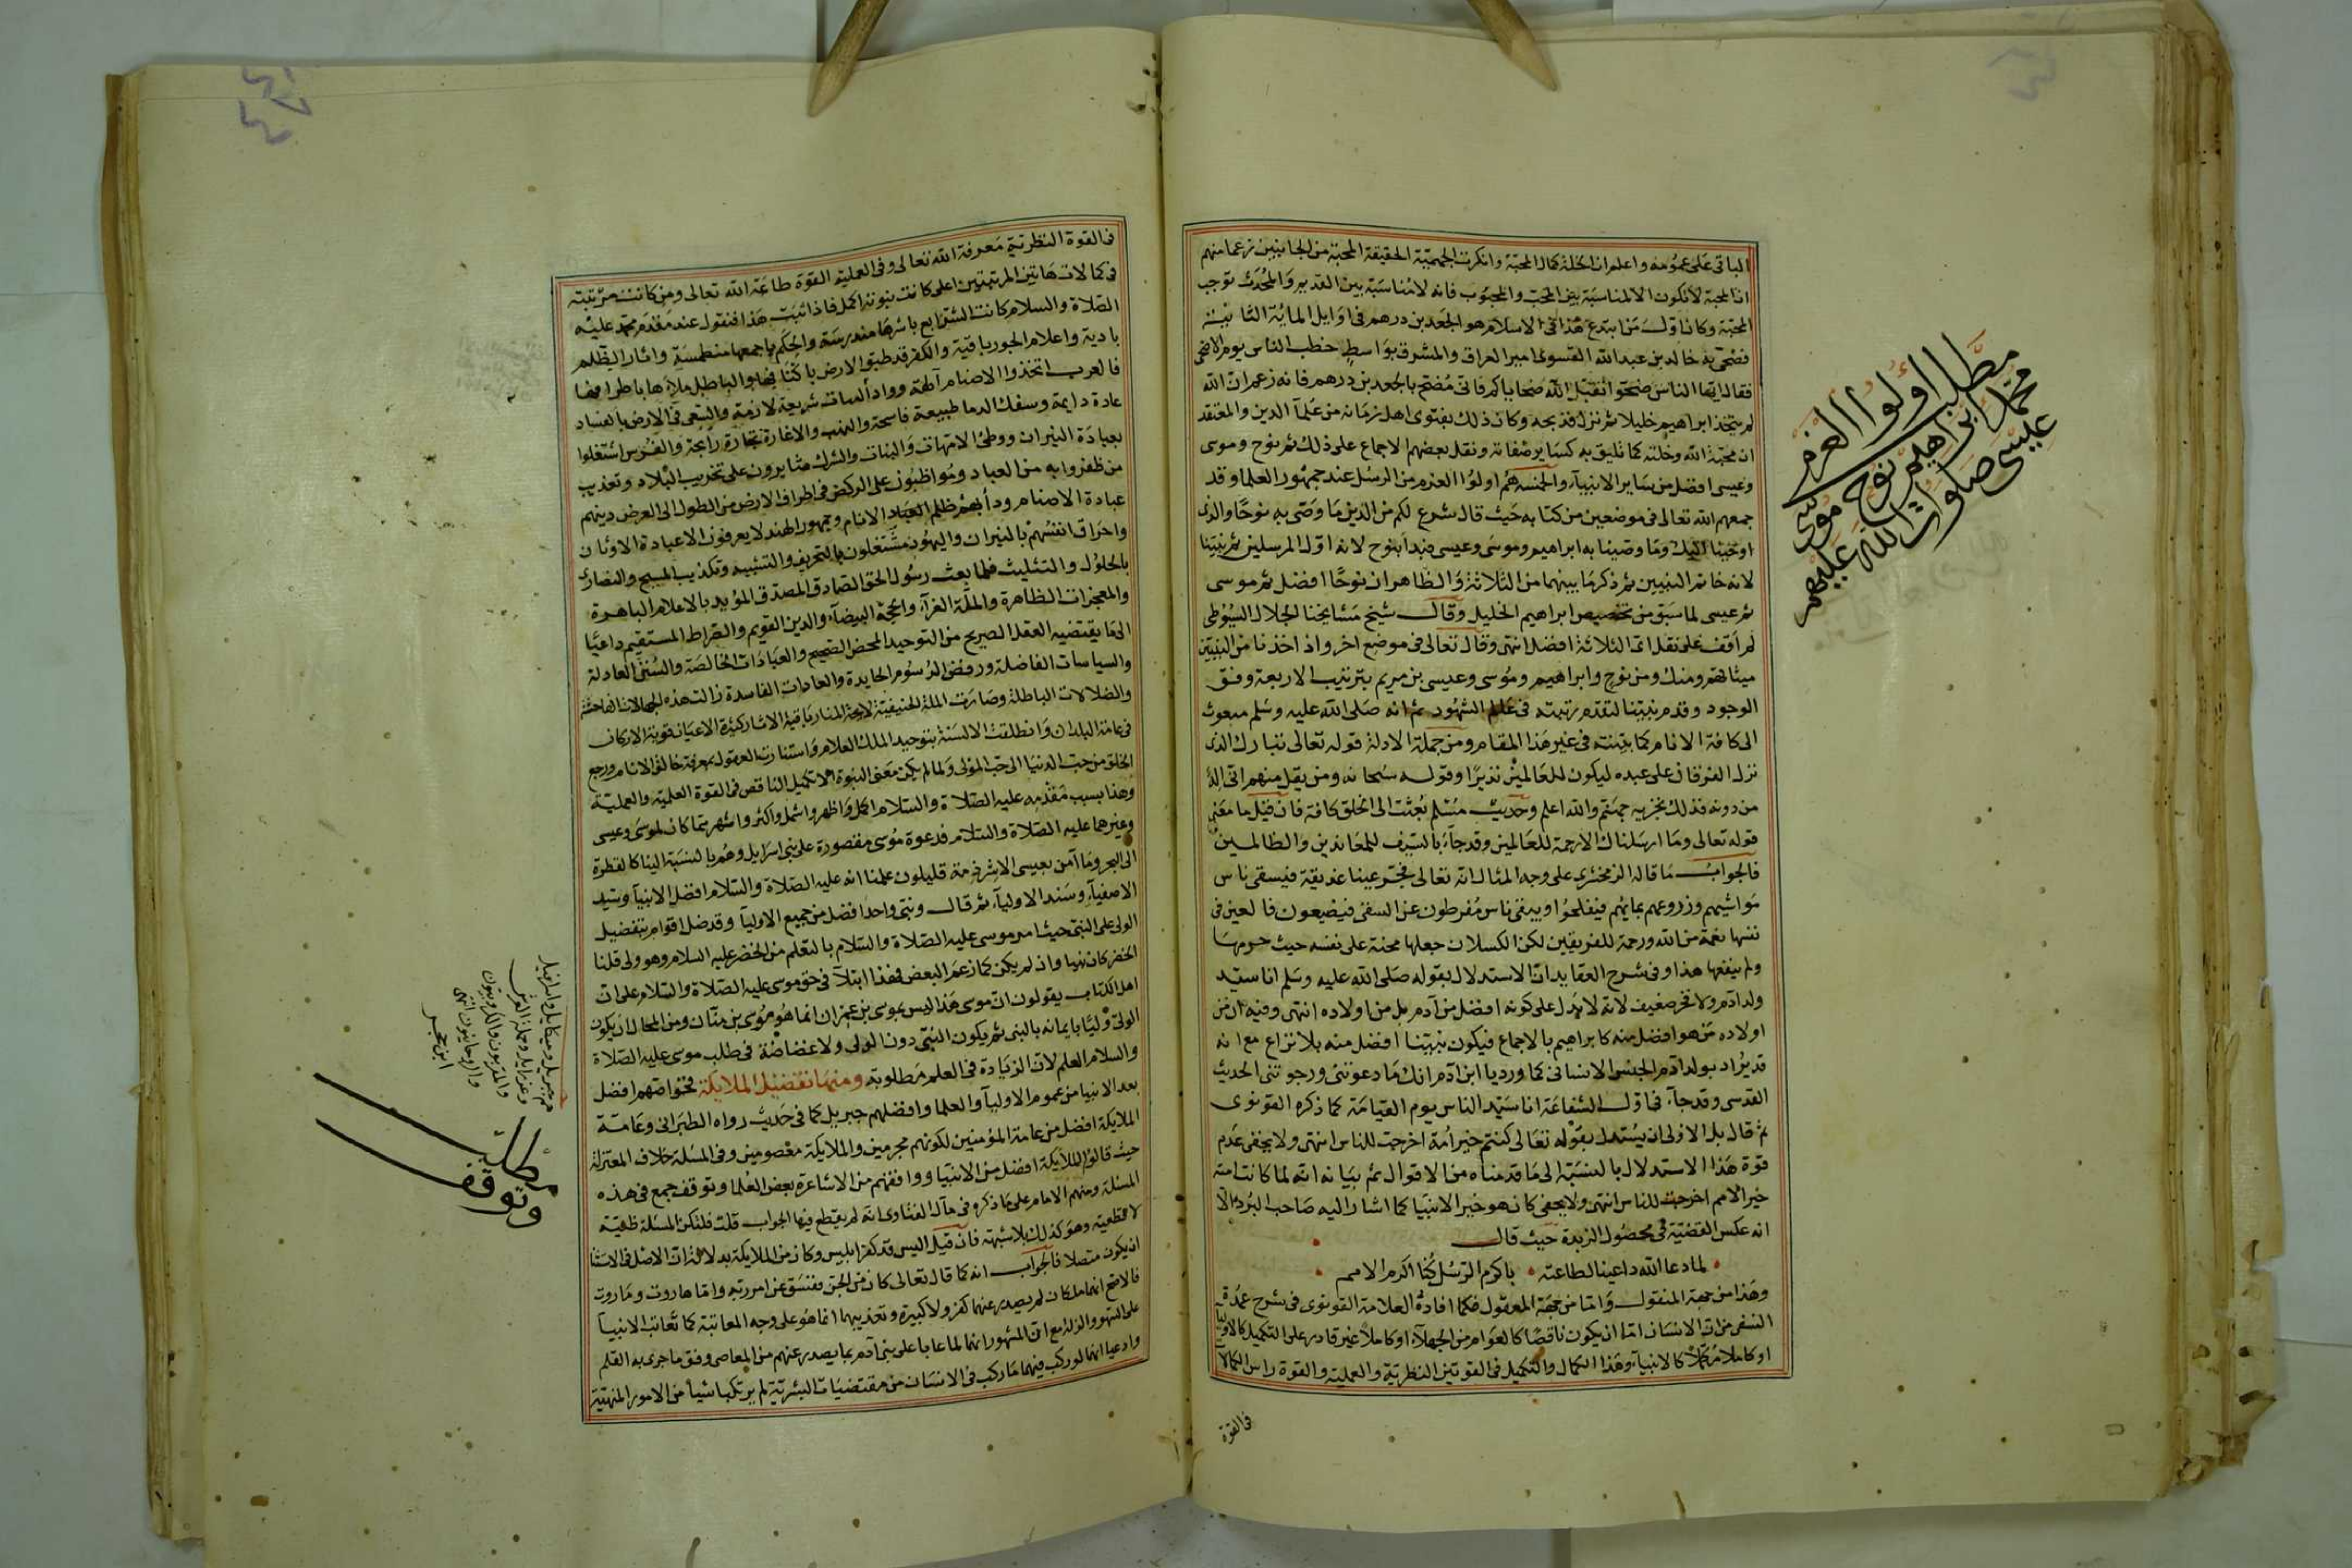 الباقى على عمومه واعلم ان الخلة كمال المحبة وانكرت الجهمية الحقيقة المحبة من الجانبين زعما منهم
ان المحبة لا تكون الا لمناسبة بين المحب والمحبوب فانه لا مناسبة بين القديم والمحدث توجب
المحبة وكان اول من ابتدع هذا فى الاسلام هو الجعد بن درهم فى اوايل الماية الثانية
فضحى به خالد بن عبد الله القسرى امير العراق والمشرق بواسط خطب الناس يوم الاضحى
فقال ايها الناس ضحوا تقبل الله ضحاياكم فانى مضح بالجعد بن درهم فانه زعم ان الله
لم يتخذ ابراهيم خليلا ثم نزل فذبحه وكان ذلك بفتوى اهل زمانه من علمآ الدين والمعتقد
ان محبة الله وخلته كما تليق به كساير صفاته ونقل بعضهم الاجماع على ذلك ثم نوح وموسى
وعيسى افضل من ساير الانبيآء والخمسة هم اولوا العزم من الرسل عند جمهور العلما وقد
جمعهم الله تعالى فى موضعين من كتابه حيث قال شرع لكم من الدين ما وصى به نوحا والذى
اوحينا اليك وما وصينا به ابراهيم وموسى وعيسى فبدأ بنوح لانه اول المرسلين ثم بنبينا
لانه خاتم النبيين ثم ذكر ما بينهما من الثلاثة والظاهر ان نوحا افضل ثم موسى
ثم عيسى لما سبق من تخصيص ابراهيم الخليل وقال شيخ مشايخنا الجلال السيوطى
لم اقف على نقل اى الثلاثة افضل انتهى وقال تعالى فى موضع اخر واذ اخذنا من النبيين
ميثاقهم ومنك ومن نوح وابراهيم وموسى وعيسى بن مريم بترتيب الاربعة وفق
الوجود وقدم نبينا لتقدم رتبته فى عالم الشهود ثم انه صلى الله عليه وسلم مبعوث
الى كافة الانام كما بينته فى غير هذا المقام ومن جملة الادلة قوله تعالى تبارك الذى
نزل الفرقان على عبده ليكون للعالمين نذيرا وقوله سبحانه ومن يقل منهم انى اله
من دونه فذلك نجزيه جهنم والله اعلم وحديث مسلم بعثت الى الخلق كافة فان قيل ما معنى
قوله تعالى وما ارسلناك الا رحمة للعالمين وقد جآء بالسيف للمعاندين والظالمين
فالجواب ما قاله الزمخشرى على وجه المثال انه تعالى فجر عينا غديقة فيسقى ناس
مواشيهم وزروعهم بمائهم فيفلحوا ويبقى ناس مفرطون عن السقى فيضيعون فالعين فى
نفسها نعمة من الله ورحمة للفريقين لكن الكسلان جعلها محنة على نفسه حيث حرمها
ولم ينفعها هذا وفى شرح العقايد ان الاستدلال بقوله صلى الله عليه وسلم انا سيد
ولد آدم ولا فخر ضعيف لانه لا يدل على كونه افضل من آدم بل من اولاده انتهى وفيه ان من
اولاده من هو افضل منه كابراهيم بالاجماع فيكون نبينا افضل منه بلا نزاع مع انه
قد يراد بولد آدم الجنس الانسانى كما ورد يا ابن آدم انك ما دعوتنى ورجوتنى الحديث
القدسى وقد جآء فى اول الشفاعة انا سيد الناس يوم القيامة كما ذكره القونوى
ثم قال بل الاولى ان يستدل بقوله تعالى كنتم خير امة اخرجت للناس انتهى ولا يخفى عدم
قوة هذا الاستدلال بالنسبة الى ما قدمناه من الاقوال ثم بيانه انه لما كانت امته
خير الامم اخرجت للناس انتهى ولا يخفى كان هو خير الانبيا كما اشار اليه صاحب البردة الا
انه عكس القضية فى محصول الزبدة حيث قال
لما دعا الله داعينا لطاعته باكرم الرسل كنا اكرم الامم
وهذا من جهة المنقول واما من جهة المعقول فكما افاده العلامة القونوى فى شرح عمدة
النسفى من ان الانسان اما ان يكون ناقصا كالعوام من الجهلآء او كاملا غير قادر على التكميل كالاوليا
او كاملا مكملا كالانبيآء وهذا الكمال والتكميل فى القوتين النظرية والعملية والقوة راس الكمالا
فى القوة
مطلب اولوا العزم
محمد ابراهيم نوح موسى
عيسى صلوات الله عليهم
فى القوة النظرية معرفة الله تعالى وفى العملية القوة طاعة الله تعالى ومن كانت مرتبته
فى كمالات هاتين المرتبتين اعلى كانت نبوته اكمل فاذا ثبت هذا فنقول عند مقدم محمد عليه
الصلاة والسلام كانت الشرايع باسرها مندرسة والحكم باجمعها منطمسة واثار الظلم
بادية واعلام الجور باقية والكفر قد طبق الارض باكنافها والباطل ملاءها باطرافها
فالعرب اتخذوا الاصنام آلهة وواد البنات شريعة لازمة والسعى فى الارض بالفساد
عادة دايمة وسفك الدما طبيعة فاسحة والنهب والاغارة تجارة رابحة والفرس اشتغلوا
بعبادة النيران ووطئ الامهات والبنات والترك مثابرون على تخريب البلاد وتعذيب
من ظفروا به من العباد ومواظبون على الركض فى اطراف الارض من الطول الى العرض دينهم
عبادة الاصنام ودأبهم ظلم العباد الانام وجمهور الهند لا يعرفون الا عبادة الاوثان
واحراق انفسهم بالنيران واليهود مشتغلون بالتحريف والتشبيه وتكذيب المسيح والنصارى
بالحلول والتثليث فلما بعث رسول الحق الصادق المصدق المؤيد بالاعلام الباهرة
والمعجزات الظاهرة والملة الغرآء والحجة البيضآء والدين القويم والصراط المستقيم داعيا
الى ما يقتضيه العقل الصريح من التوحيد المحض الصحيح والعبادات الخالصة والسنن العادلة
والسياسات الفاضلة ورفض الرسوم الحايدة والعادات الفاسدة زالت هذه الجهالات الفاحشة
والضلالات الباطلة وصارت الملة الحنيفية لايحة المنار باقية الاثار كثيرة الاعيان قوية الاركان
فى عامة البلدان وانطلقت الالسنة بتوحيد الملك العلام واستنارت العقول بمعرفة خالق الانام ورجع
الخلق من حب الدنيا الى حب المولى ولما لم يكن معنى النبوة الا تكميل الناقص فى القوة العلمية والعملية
وهذا بسبب مقدمه عليه الصلاة والسلام اكمل واظهر واشمل واكثر واشهر مما كان لموسى وعيسى
وغيرهما عليه الصلاة والسلام فدعوة موسى مقصورة على بنى اسرايل وهم بالنسبة الينا كالقطرة
الى البحر وما آمن بعيسى الا شرذمة قليلون علمنا انه عليه الصلاة والسلام افضل الانبيآ وسيد
الاصفيآء وسند الاوليآء ثم قال ونبى واحد افضل من جميع الاوليآ وقد ضل اقوام بتفضيل
الولى على النبى حيث امر موسى عليه الصلاة والسلام بالتعلم من الخضر عليه السلام وهو ولى قلنا
الخضر كان نبيا وان لم يكن كما زعم البعض فهذا ابتلآ فى حق موسى عليه الصلاة والسلام على ان
اهل الكتاب يقولون ان موسى هذا ليس بموسى بن عمران انما هو موسى بن متان ومن المحال ان يكون
الولى وليا بايمانه بالنبى ثم يكون النبى دون الولى ولا غضاضة فى طلب موسى عليه الصلاة
والسلام العلم لان الزيادة فى العلم مطلوبة ومنها تفضيل الملايكة فخواصهم افضل
بعد الانبيا من عموم الاوليآ والعلما وافضلهم جبريل كما فى حديث رواه الطبرانى وعامة
الملايكة افضل من عامة المؤمنين لكونهم مجرمين والملايكة معصومين وفى المسئلة خلاف المعتزلة
حيث قالوا الملايكة افضل من الانبيا ووافقهم من الاشاعرة بعض العلما وتوقف جمع فى هذه
المسئلة ومنهم الامام على ما ذكره فى مآل الفتاوى انه لم يقطع فيها الجواب قلت فلتكن المسئلة ظنية
لا قطعية وهو كذلك بلا شبهة فان قيل اليس قد كفر ابليس وكان من الملايكة بدلالة ان الاصل فى الاستثنا
ان يكون متصلا فالجواب انه كما قال تعالى كان من الجن ففسق عن امر ربه واما هاروت وماروت
فالاصح انهما ملكان لم يصدر عنهما كفر ولا كبيرة وتعذيبهما انما هو على وجه المعاتبة كما تعاتب الانبيآ
على السهو والزلة مع ان المشهور انهما لما عابا على بنى آدم بما يصدر عنهم من المعاصى وفق ما جرى به القلم
وادعيا انهما لو ركب فيهما ما ركب فى الانسان من مقتضيات البشرية لم يرتكبا شيأ من الامور المنهية
هم جبريل وميكايل واسرافيل
وعزرايل وحملة العرش
والمقربون والكروبيون
والروحانيون انتهى
ابن حجر
مطلب
وتوقف